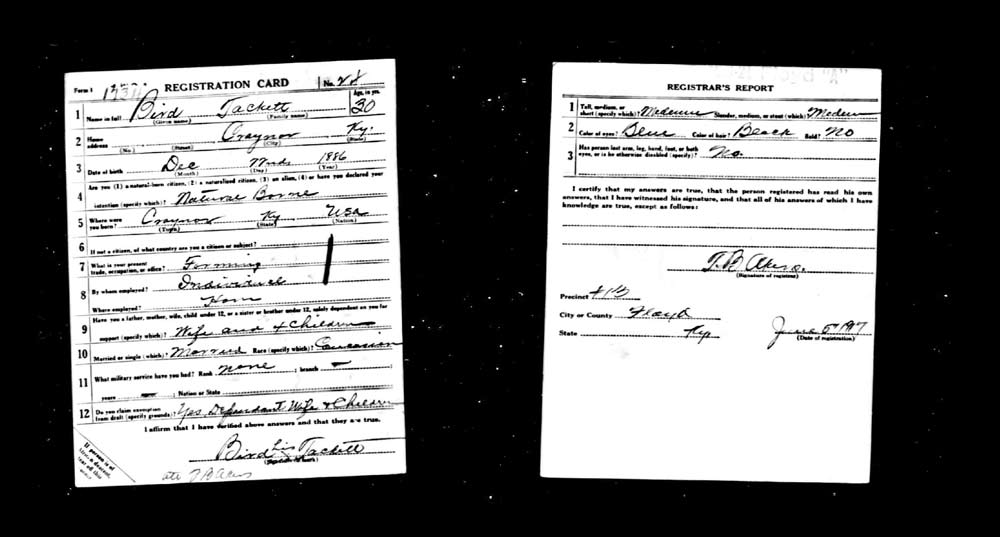 Form 1 REGISTRATION CARD No. 28
1 Name in full Bird Tackett Age, in yrs. 30
(Given name) (Family name)
2 Home address Craynor Ky.
(No.) (Street) (City) (State)
3 Date of birth Dec 1886
(Month) (Day) (Year)
Are you (1) a natural-born citizen, (2) a naturalized citizen, (3) an alien, (4) or have you declared your
4 intention (specify which)? Natural Borne
5 Where were you born? Craynor Ky USA
(Town) (State) (Nation)
6 If not a citizen, of what country are you a citizen or subject?
7 What is your present trade, occupation, or office? Forming
8 By whom employed? Individual
Where employed? Hom
Have you a father, mother, wife, child under 12, or a sister or brother under 12, solely dependent on you for
9 support (specify which)? Wife and 4 Children
10 Married or single (which)? Married Race (specify which)? Caucasian
11 What military service have you had? Rank none ; branch
years ; Nation or State
12 Do you claim exemption from draft (specify grounds)? Yes, Defendant Wife & Children
I affirm that I have verified above answers and that they are true.
Bird his Tackett
If person is of African descent, tear off this corner
REGISTRAR'S REPORT
1 Tall, medium, or short (specify which)? Medium Slender, medium, or stout (which)? Medium
2 Color of eyes? Blue Color of hair? Black Bald? No
3 Has person lost arm, leg, hand, foot, or both eyes, or is he otherwise disabled (specify)? No.
I certify that my answers are true, that the person registered has read his own
answers, that I have witnessed his signature, and that all of his answers of which I have
knowledge are true, except as follows:
T. B. Akers.
(Signature of registrar)
Precinct
City or County Floyd
State Ky June 5th 1917
(Date of registration)